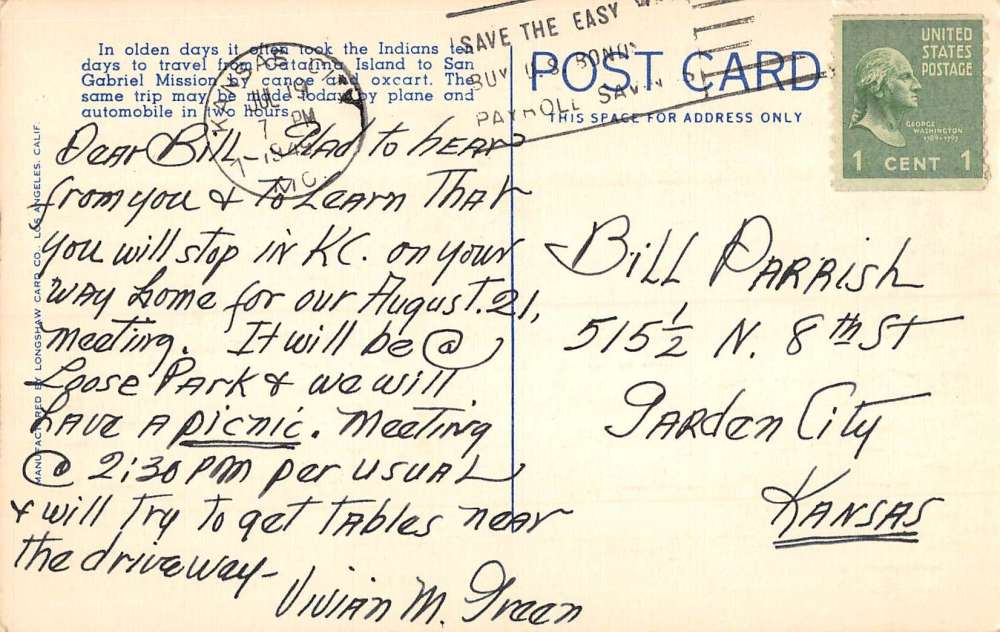 In olden days it often took the Indians ten
days to travel from Catalina Island to San
Gabriel Mission by canoe and oxcart. The
same trip may be made today by plane and
automobile in two hours.
KANSAS CITY
JUL 19
7 PM
1949
MO.
SAVE THE EASY WAY
BUY U.S. BONDS
PAYROLL SAVINGS
POST CARD
THIS SPACE FOR ADDRESS ONLY
UNITED
STATES
POSTAGE
GEORGE
WASHINGTON
1789-1797
1 CENT 1
MANUFACTURED BY LONGSHAW CARD CO., LOS ANGELES, CALIF.
Dear Bill, Glad to hear
from you & to Learn That
you will stop in KC. on your
way home for our August. 21,
meeting. It will be @
Loose Park & we will
have a picnic. Meeting
@ 2:30 PM per usual
& will Try to get Tables near
the driveway-
Vivian M. Green
Bill Parrish
515½ N. 8th St
Garden City
Kansas